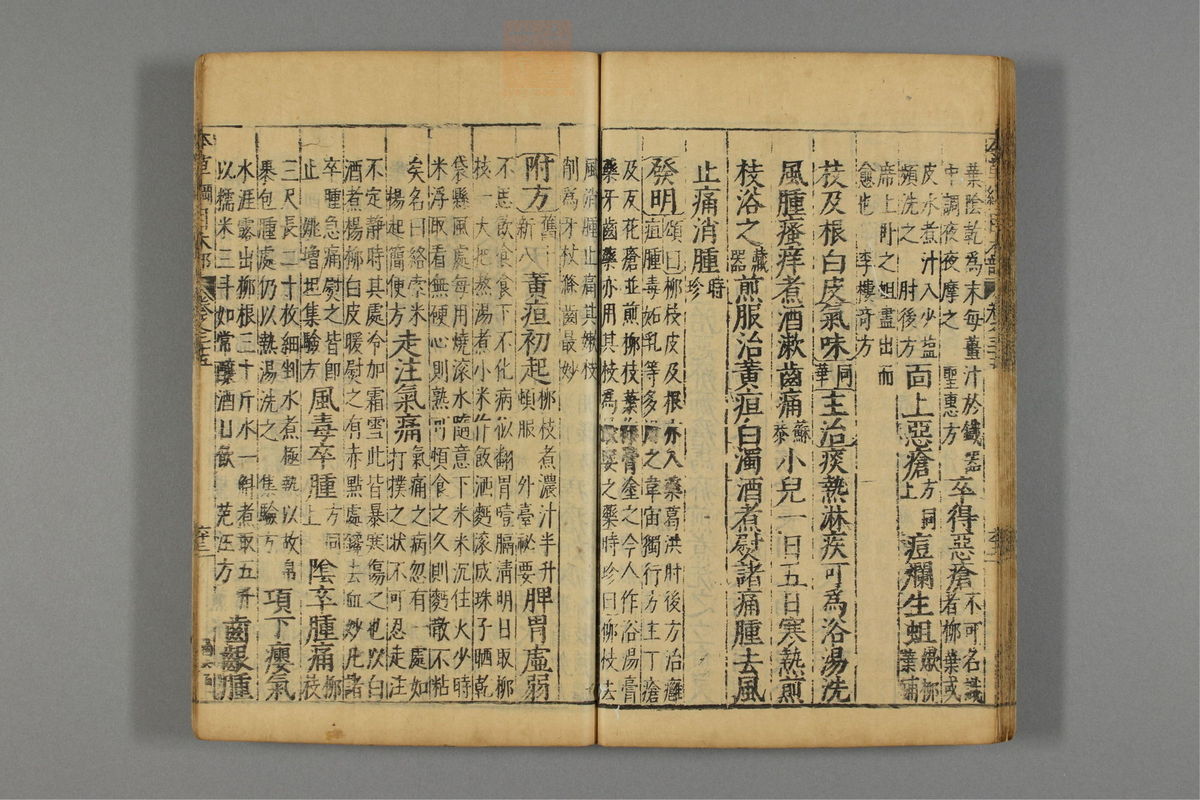 葉陰乾為末每薑汁於鐵器
中調夜夜摩之 聖惠方 卒得惡瘡 不可名識
者柳葉或
皮水煮汁入少鹽
頻洗之 肘後方 面上惡瘡 方同
上 痘爛生蛆 嫩柳
葉鋪
席上卧之蛆盡出而
愈也 李樓奇方
枝及根白皮氣味 同
華 主治痰熱淋疾可為浴湯洗
風腫瘙痒煮酒漱齒痛 蘇
恭 小兒一日五日寒熱煎
枝浴之 藏
器 煎服治黃疸白濁酒煮熨諸痛腫去風
止痛消腫 時
珍
發明 頌曰柳枝皮及根亦入藥葛洪肘後方治癰
疽腫毒妬乳等多用之韋宙獨行方主丁瘡
及反花瘡並煎柳枝葉作膏塗之今人作浴湯膏
藥牙齒藥亦用其枝為最要之藥時珍曰柳枝去
風消腫止痛其嫩枝
削為牙杖滌齒最妙
附方 舊一
新八 黃疸初起 柳枝煮濃汁半升
頓服 外臺祕要 脾胃虛弱
不思飲食食下不化病似翻胃噎膈清明日取柳
枝一大把熬湯煮小米作飯洒麪滾成珠子晒乾
袋懸風處每用燒滾水隨意下米米沉住火少時
米浮取看無硬心則熟可頓食之久則麪散不粘
矣名曰絡索米
楊起簡便方 走注氣痛 氣痛之病忽有一處如
打撲之狀不可忍走注
不定靜時其處冷如霜雪此皆暴寒傷之也以白
酒煮楊柳白皮暖熨之有赤點處鎞去血妙凡諸
卒腫急痛熨之皆即
止 姚增坦集驗方 風毒卒腫 方同
上 陰卒腫痛 柳枝
三尺長二十枚細剉水煮極熱以故帛
裹包腫處仍以熱湯洗之 集驗方 項下癭氣
水涯露出柳根三十斤水一斛煮取五升
以糯米三斗如常釀酒日飲 范汪方 齒齦腫